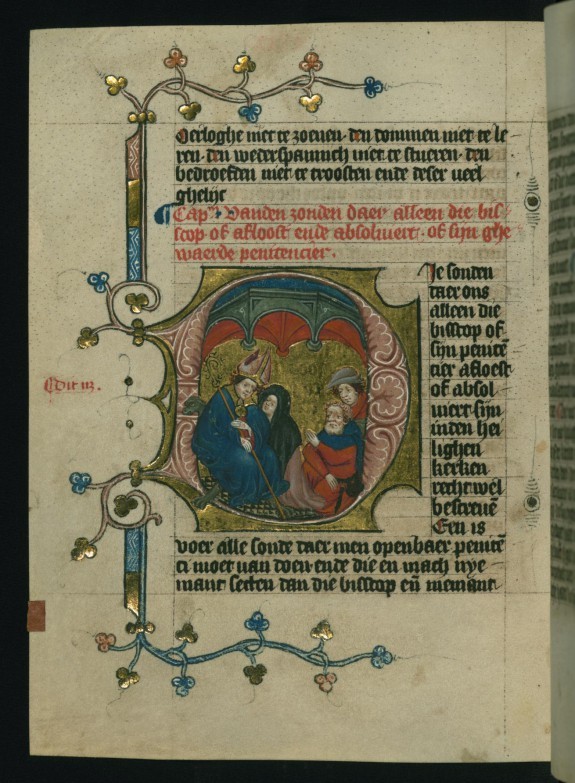 Oerloghe niet te zoenen · den dommen niet te le
ren · den wederspannich niet te stueren · den
bedroefden niet te troosten ende deser ueel
ghelijc
Cap Vanden zonden daer alleen die bis
scop of afloost ende absoluiert · of sijn ghe
waerde penitencier .
Die sonden
daer ons
alleen die
bisscop of
sijn penitē
cier afloest
of absol
uiert sijn
inden hei
lighen
kerken
recht wel
bescreuē
Een is
voer alle sonde daer men openbaer penitē
ci moet uan doen ende die en mach nye
mant setten dan die bisscop eñ niemant